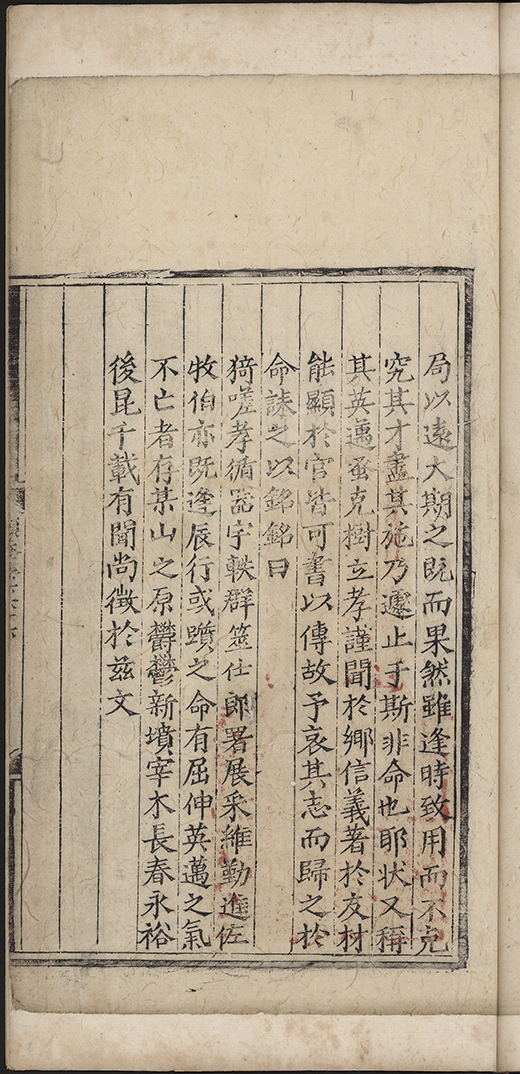 局以遠大期之既而果然雖逢時致用而不克
究其才盡其施乃遽止于斯非命也耶狀又稱
其英邁蚤克樹立孝謹聞於鄉信義著於友材
能顯於官皆可書以傳故予哀其志而歸之於
命誄之以銘銘曰
猗嗟孝循器宇軼群筮仕郎署展采維勤進佐
牧伯亦既逢辰行或躓之命有屈伸英邁之氣
不亡者存某山之原鬱鬱新墳宰木長春永裕
後昆千載有聞尚徵於茲文